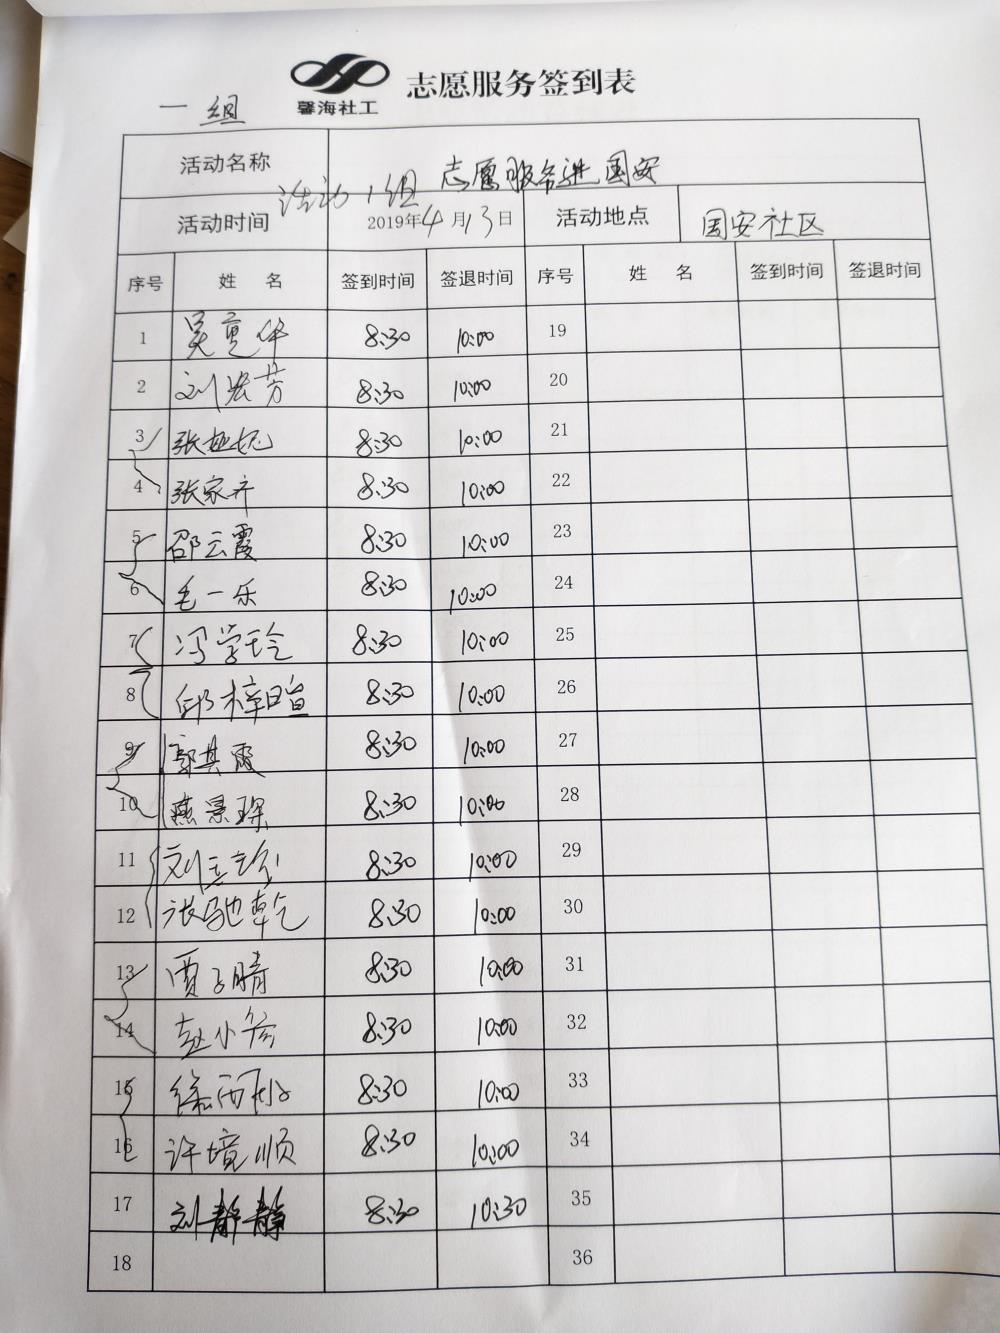 一组
馨海社工
志愿服务签到表
活动名称 活动1组 志愿服务进国安
活动时间 2019年4月13日 活动地点 国安社区
序号 姓 名 签到时间 签退时间 序号 姓 名 签到时间 签退时间
1 吴 8:30 10:00 19
2 刘宏芳 8:30 10:00 20
3 张 8:30 10:00 21
4 张家齐 8:30 10:00 22
5 邵云霞 8:30 10:00 23
6 毛一乐 8:30 10:00 24
7 冯学玲 8:30 10:00 25
8 邱梓暄 8:30 10:00 26
9 郭其霞 8:30 10:00 27
10 燕景琛 8:30 10:00 28
11 刘 8:30 10:00 29
12 张驰乾 8:30 10:00 30
13 贾子晴 8:30 10:00 31
14 赵小 8:30 10:00 32
15 徐 8:30 10:00 33
16 许境顺 8:30 10:00 34
17 刘静静 8:30 10:30 35
18 36